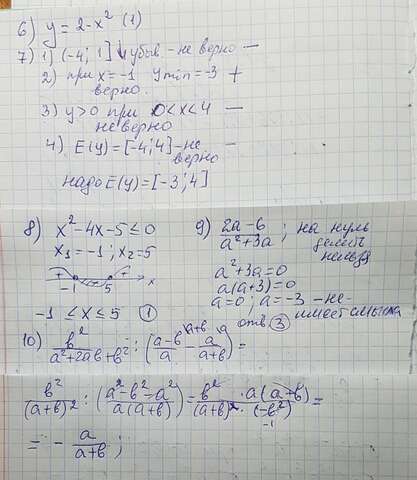 6) y = 2 - x² (1)
7) 1) (-4; 1] убыв - не верно —
2) при x = -1 y min = -3 +
верно.
3) y > 0 при 0 < x < 4 —
не верно
4) E(y) = [-4; 4] - не —
верно
надо E(y) = [-3; 4]
8) x² - 4x - 5 ≤ 0
x₁ = -1; x₂ = 5
+ - + x
-1 5
-1 ≤ x ≤ 5 (1)
9) (2a - 6)/(a² + 3a); на нуль
делить
нельзя
a² + 3a = 0
a(a + 3) = 0
a = 0; a = -3 - не
имеет смысла
отв (3)
10) b²/(a² + 2ab + b²) : ((a - b)/a^(a+b) - a/(a + b)^a) =
b²/(a + b)² : ((a² - b² - a²)/(a(a + b))) = b²/(a + b)² · a(a + b)/(-b²) =
-1
= - a/(a + b);